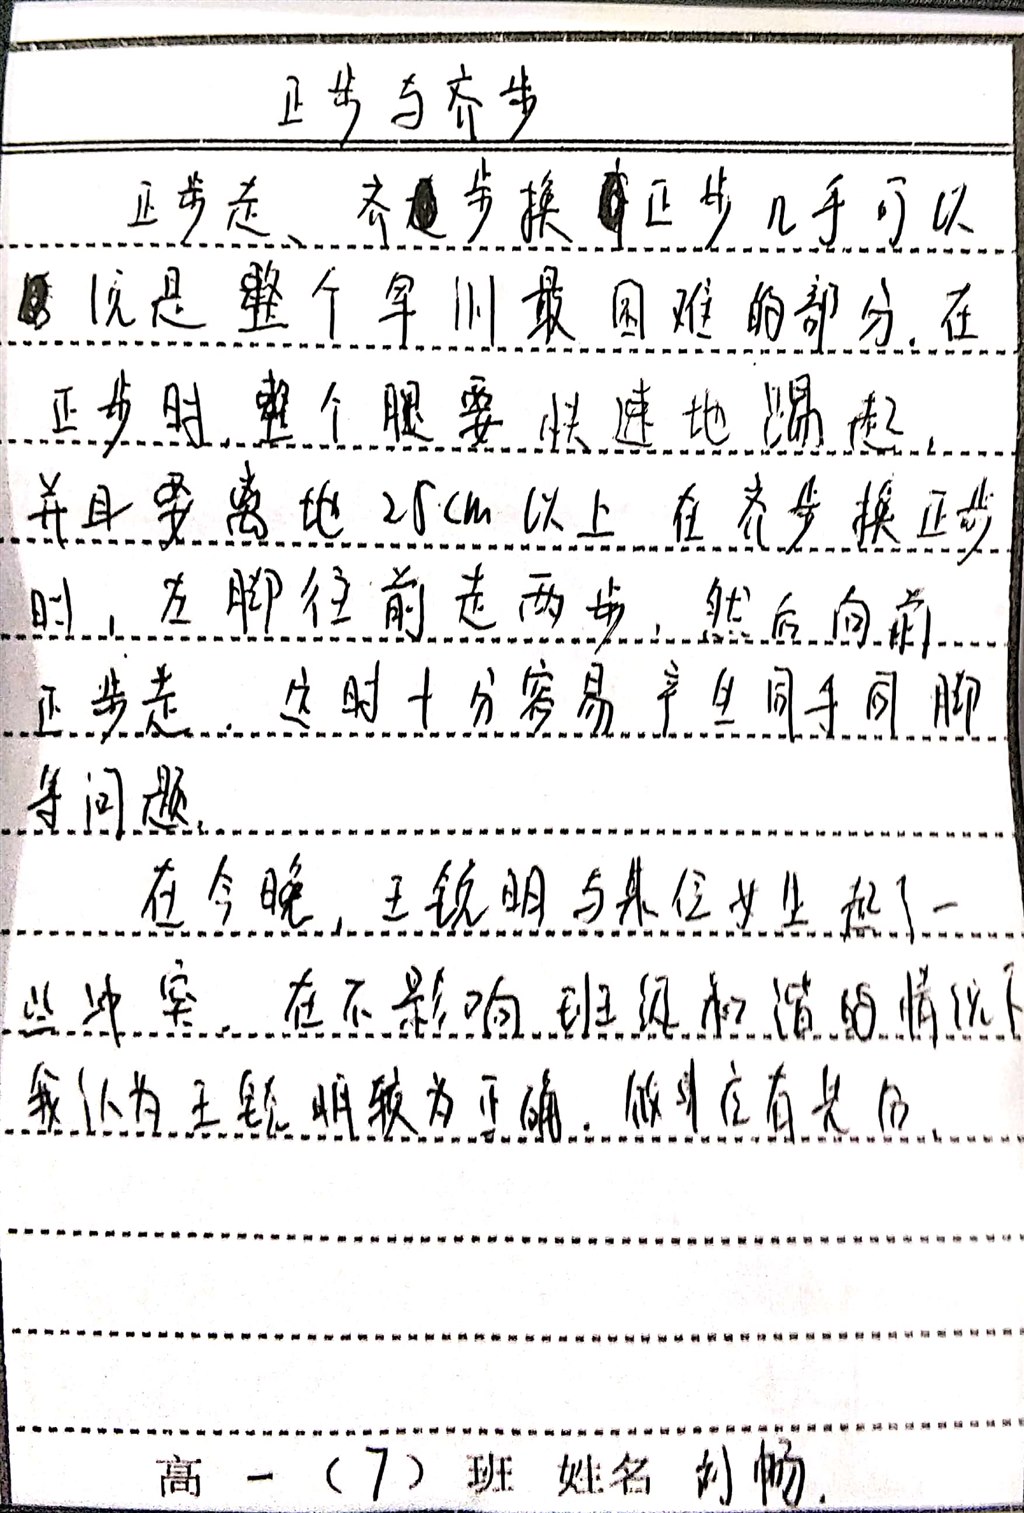 正步与齐步
正步走、齐步换正步几乎可以
说是整个军训最困难的部分.在
正步时,整个腿要快速地踢起,
并且要离地25cm以上 在齐步换正步
时,左脚往前走两步,然后向前
正步走.这时十分容易产生同手同脚
等问题.
在今晚,王锐明与某位女生起了一
些冲突.在不影响班级和谐的情况下
我认为王锐明较为正确.做到应有
高一(7)班 姓名 刘畅.